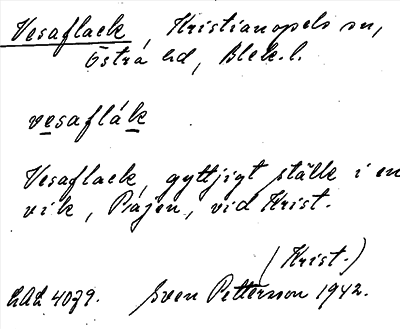 Vesaflack, Kristianopels sn,
Östra hd, Blek. l.
vesaflák
Vesaflack, gyttjigt ställe i en
vik, Pajen, vid Krist.
(Krist.)
LAL 4079. Sven Petterson 1942.